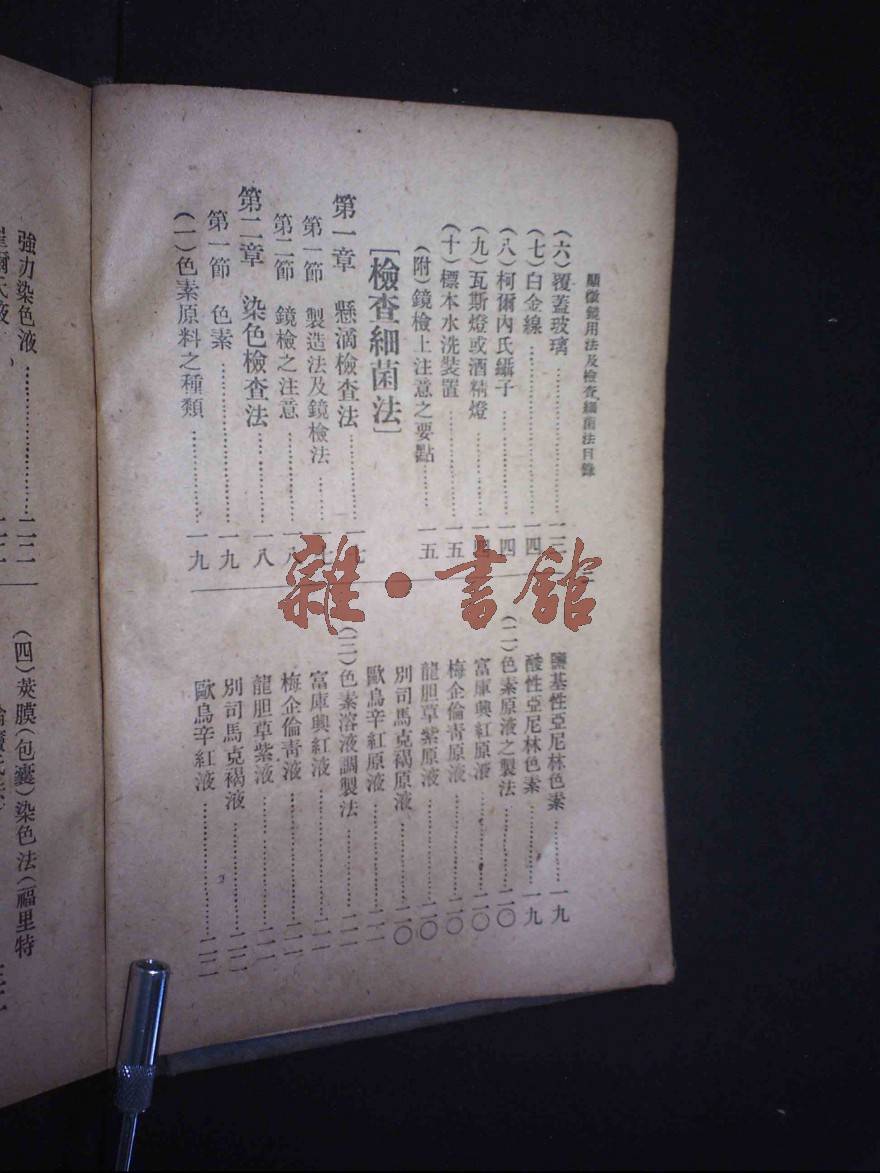 顯微鏡用法及檢查細菌法目錄
(六)覆蓋玻璃…………一三
(七)白金線…………一四
(八)柯爾內氏鑷子…………一四
(九)瓦斯燈或酒精燈…………一四
(十)標本水洗裝置…………一五
(附)鏡檢上注意之要點…………一五
[檢查細菌法]
第一章 懸滴檢查法…………一七
第一節 製造法及鏡檢法…………一七
第二節 鏡檢之注意…………一八
第二章 染色檢查法…………一八
第一節 色素…………一九
(一)色素原料之種類…………一九
鹽基性亞尼林色素…………一九
酸性亞尼林色素…………一九
(二)色素原液之製法…………二〇
富庫興紅原液…………二〇
梅企倫青原液…………二〇
龍胆草紫原液…………二〇
別司馬克褐原液…………二〇
歐鳥辛紅原液…………二一
(三)色素溶液調製法…………二一
富庫興紅液…………二一
梅企倫青液…………二一
龍胆草紫液…………二一
別司馬克褐液…………二二
歐鳥辛紅液…………二二
強力染色液…………二二
(四)莢膜(包囊)染色法(福里特
雜·書館